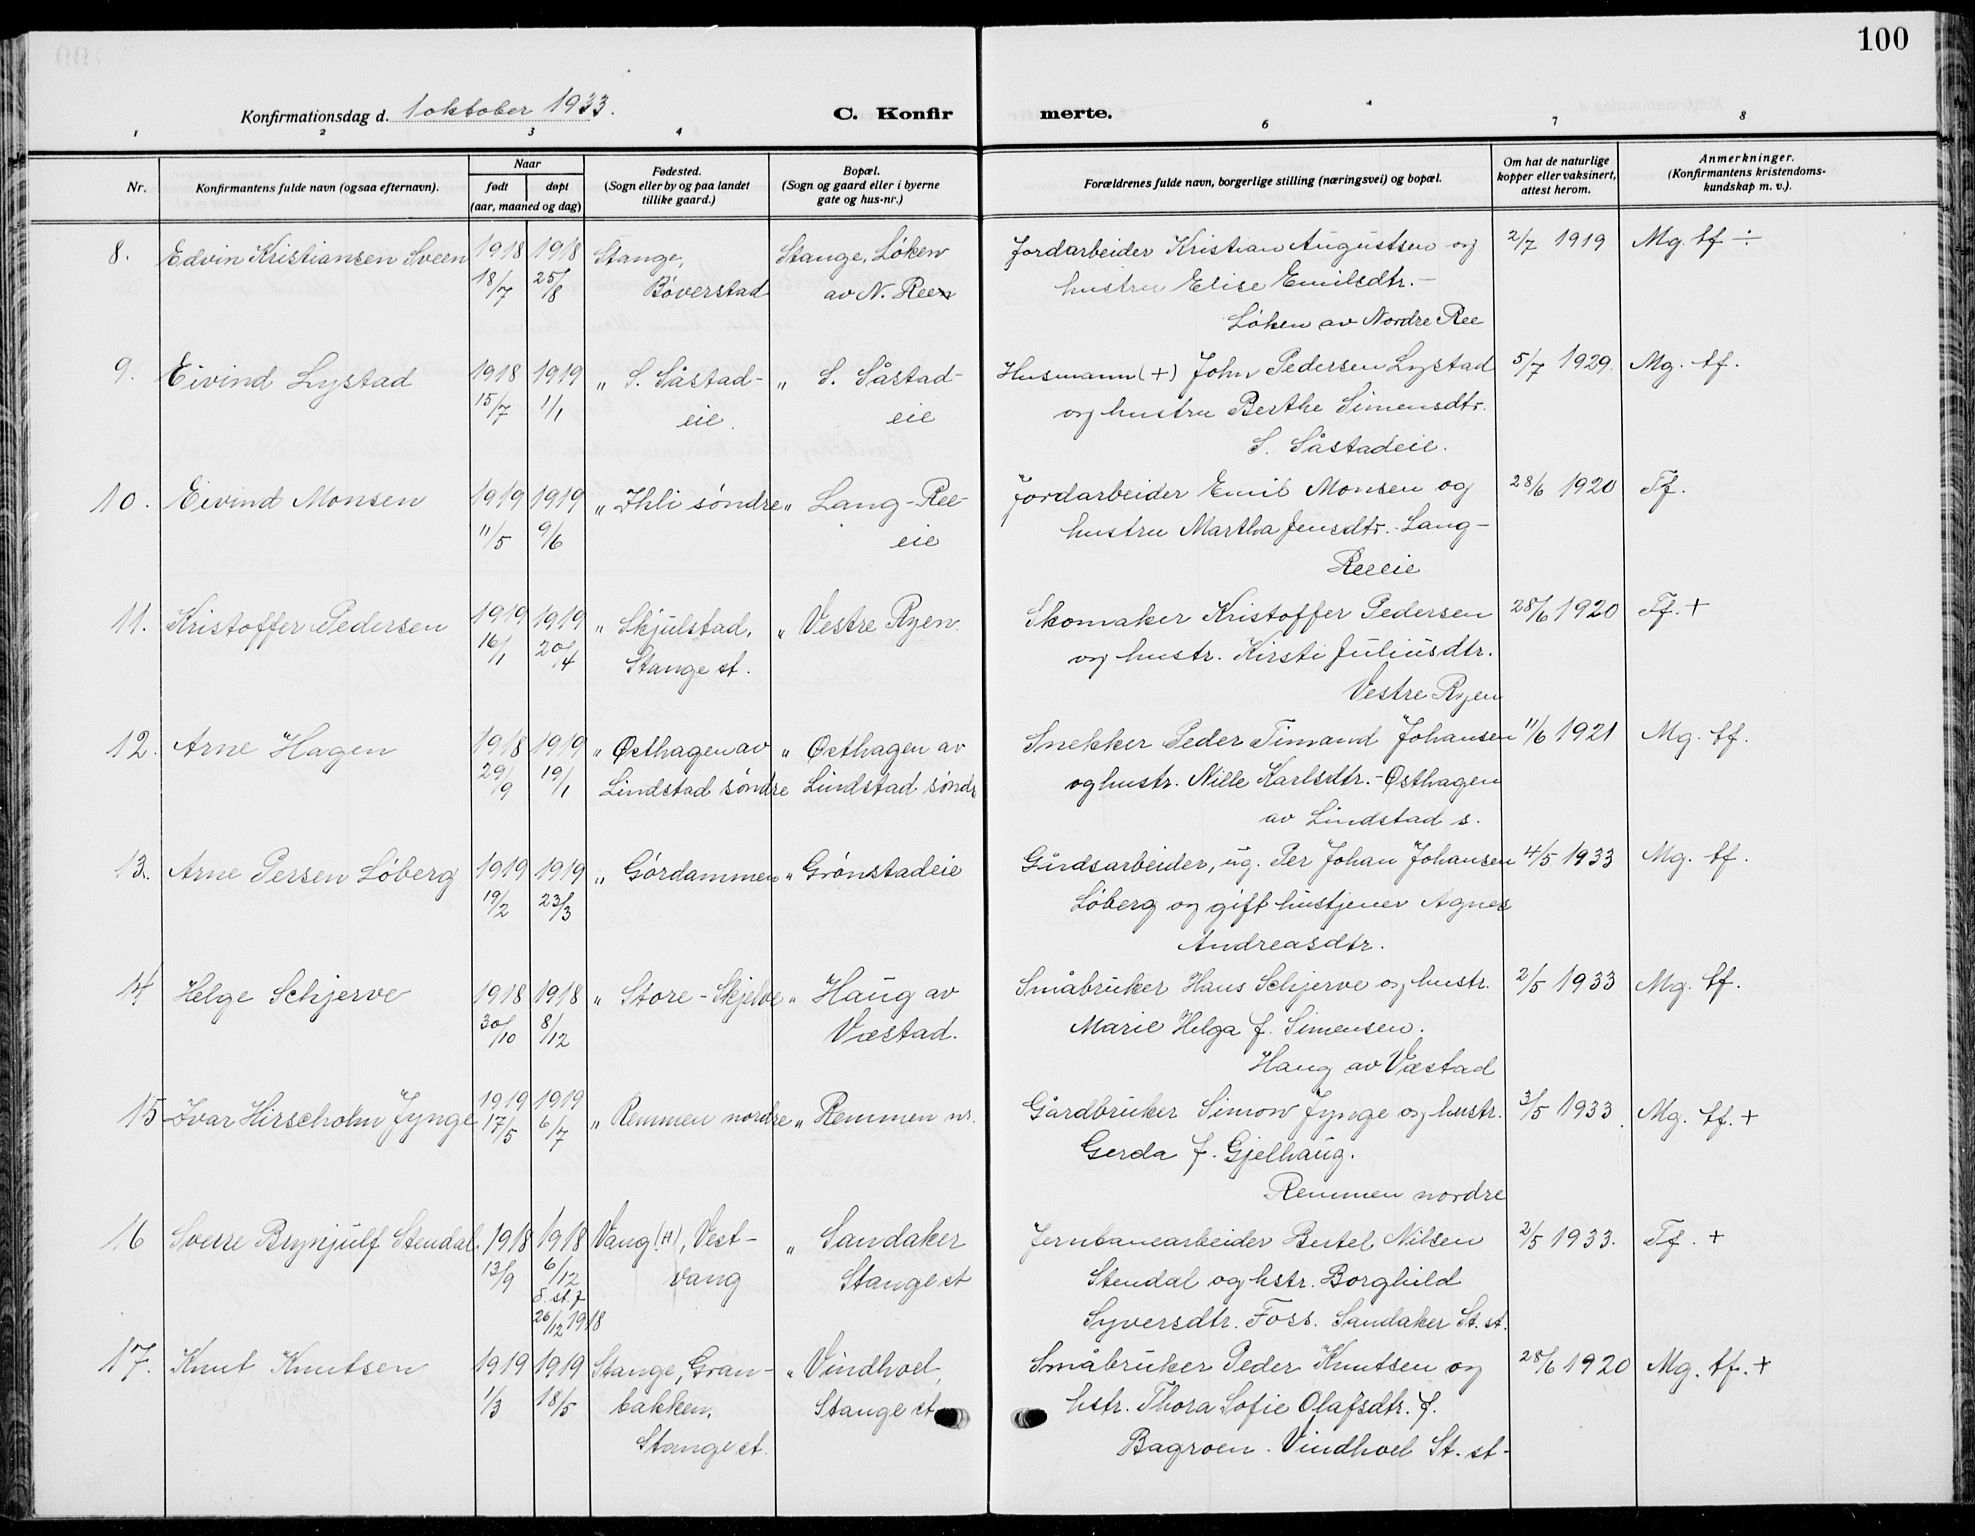 100
Konfirmationsdag d. 1 oktober 1933.
C. Konfir
merte.
1 2 3 4 6 7 8
Nr.
Konfirmantens fulde navn (ogsaa efternavn).
Naar
født døpt
(aar, maaned og dag)
Fødested.
(Sogn eller by og paa landet
tillike gaard.)
Bopæl.
(Sogn og gaard eller i byerne
gate og hus-nr.)
Forældrenes fulde navn, borgerlige stilling (næringsvei) og bopæl.
Om hat de naturlige
kopper eller vaksinert,
attest herom.
Anmerkninger.
(Konfirmantens kristendoms-
kundskap m. v.).
8. Edvin Kristiansen Sveen 1918 1918 Stange, Stange, Løken Jordarbeider Kristian Augustsen og 2/7 1919 Mg. tf ÷
18/7 25/8 Bøverstad av N. Ree hustru Elise Emilsdtr. –
Løken av Nordre Ree
9. Eivind Lystad 1918 1919 „ S. Såstad- „ S. Såstad- Husmann (+) John Pedersen Lystad 5/7 1929. Mg. tf.
15/7 1/1 eie. eie og hustru Berthe Simensdtr.
S. Såstadeie.
10. Eivind Monsen 1919 1919 „ Ihli søndre „ Lang-Ree- Jordarbeider Emil Monsen og 28/6 1920 Tf.
11/5 9/6 eie hustru Martha Jensdtr. Lang-
Reeeie
11. Kristoffer Pedersen 1919 1919 „ Skjulstad, „ Vestre Ryen. Skomaker Kristoffer Pedersen 28/6 1920 Tf. +
16/1 20/4 Stange st. og hustr. Kirsti Juliusdtr.
Vestre Ryen
12. Arne Hagen 1918 1919 „ Østhagen av „ Østhagen av Snekker Peder Timand Johansen 11/6 1921 Mg. tf.
29/9 19/1 Lindstad søndre Lindstad søndr og hustr. Nille Karlsdtr. – Østhagen
av Lindstad s.
13. Arne Persen Løberg 1919 1919 „ Gørdammen „ Grønstadeie Gårdsarbeider, ug. Per Johan Johansen 4/5 1933 Mg. tf.
19/2 23/3 Løberg og gift hustjener Agnes
Andreasdtr.
14 Helge Schjerve 1918 1918 „ Store-Skjelve „ Haug av Småbruker Hans Schjerve og hustr. 2/5 1933 Mg. tf.
30/10 8/12 Væstad. Marie Helga f. Simensen.
Haug av Væstad
15 Ivar Hirscholm Jynge 1919 1919 „ Remmen nordre „ Remmen nr. Gårdbruker Simon Jynge og hustr. 3/5 1933. Mg. tf. +
17/5 6/7 Gerda f. Gjelhaug.
Remmen nordre
16 Sverre Brynjulf Stendal. 1918 1918 Vang (H), Vest- „ Sandaker Jernbanearbeider Bertel Nilsen 2/5 1933. Tf. +
13/9 6/12 vang Stange st Stendal og hstr. Borghild
st. f
26/12 1918 Syversdtr. Foss. Sandaker St. st.
17. Knut Knutsen 1919 1919 Stange, Gran- „ Vindhvel, Småbruker Peder Knutsen og 28/6 1920 Mg. tf. +
1/3 18/5 bakken, Stange st hstr. Thora Sofie Olafsdtr. f.
Stange st. Bagroen. Vindhvel St. st.